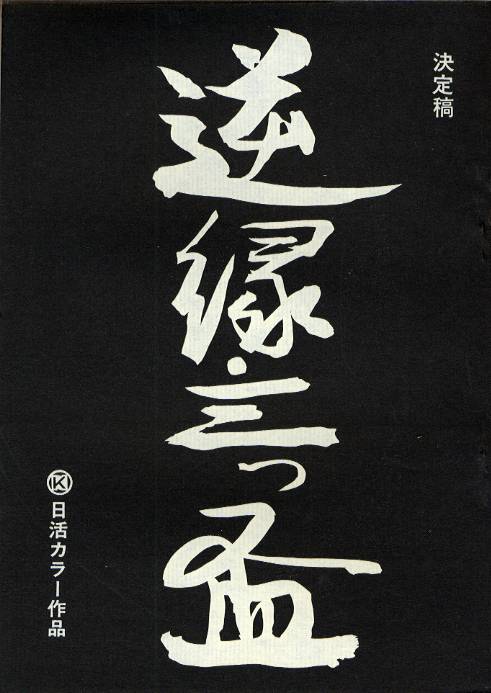 決定稿
逆縁三つ盃
日活カラー作品